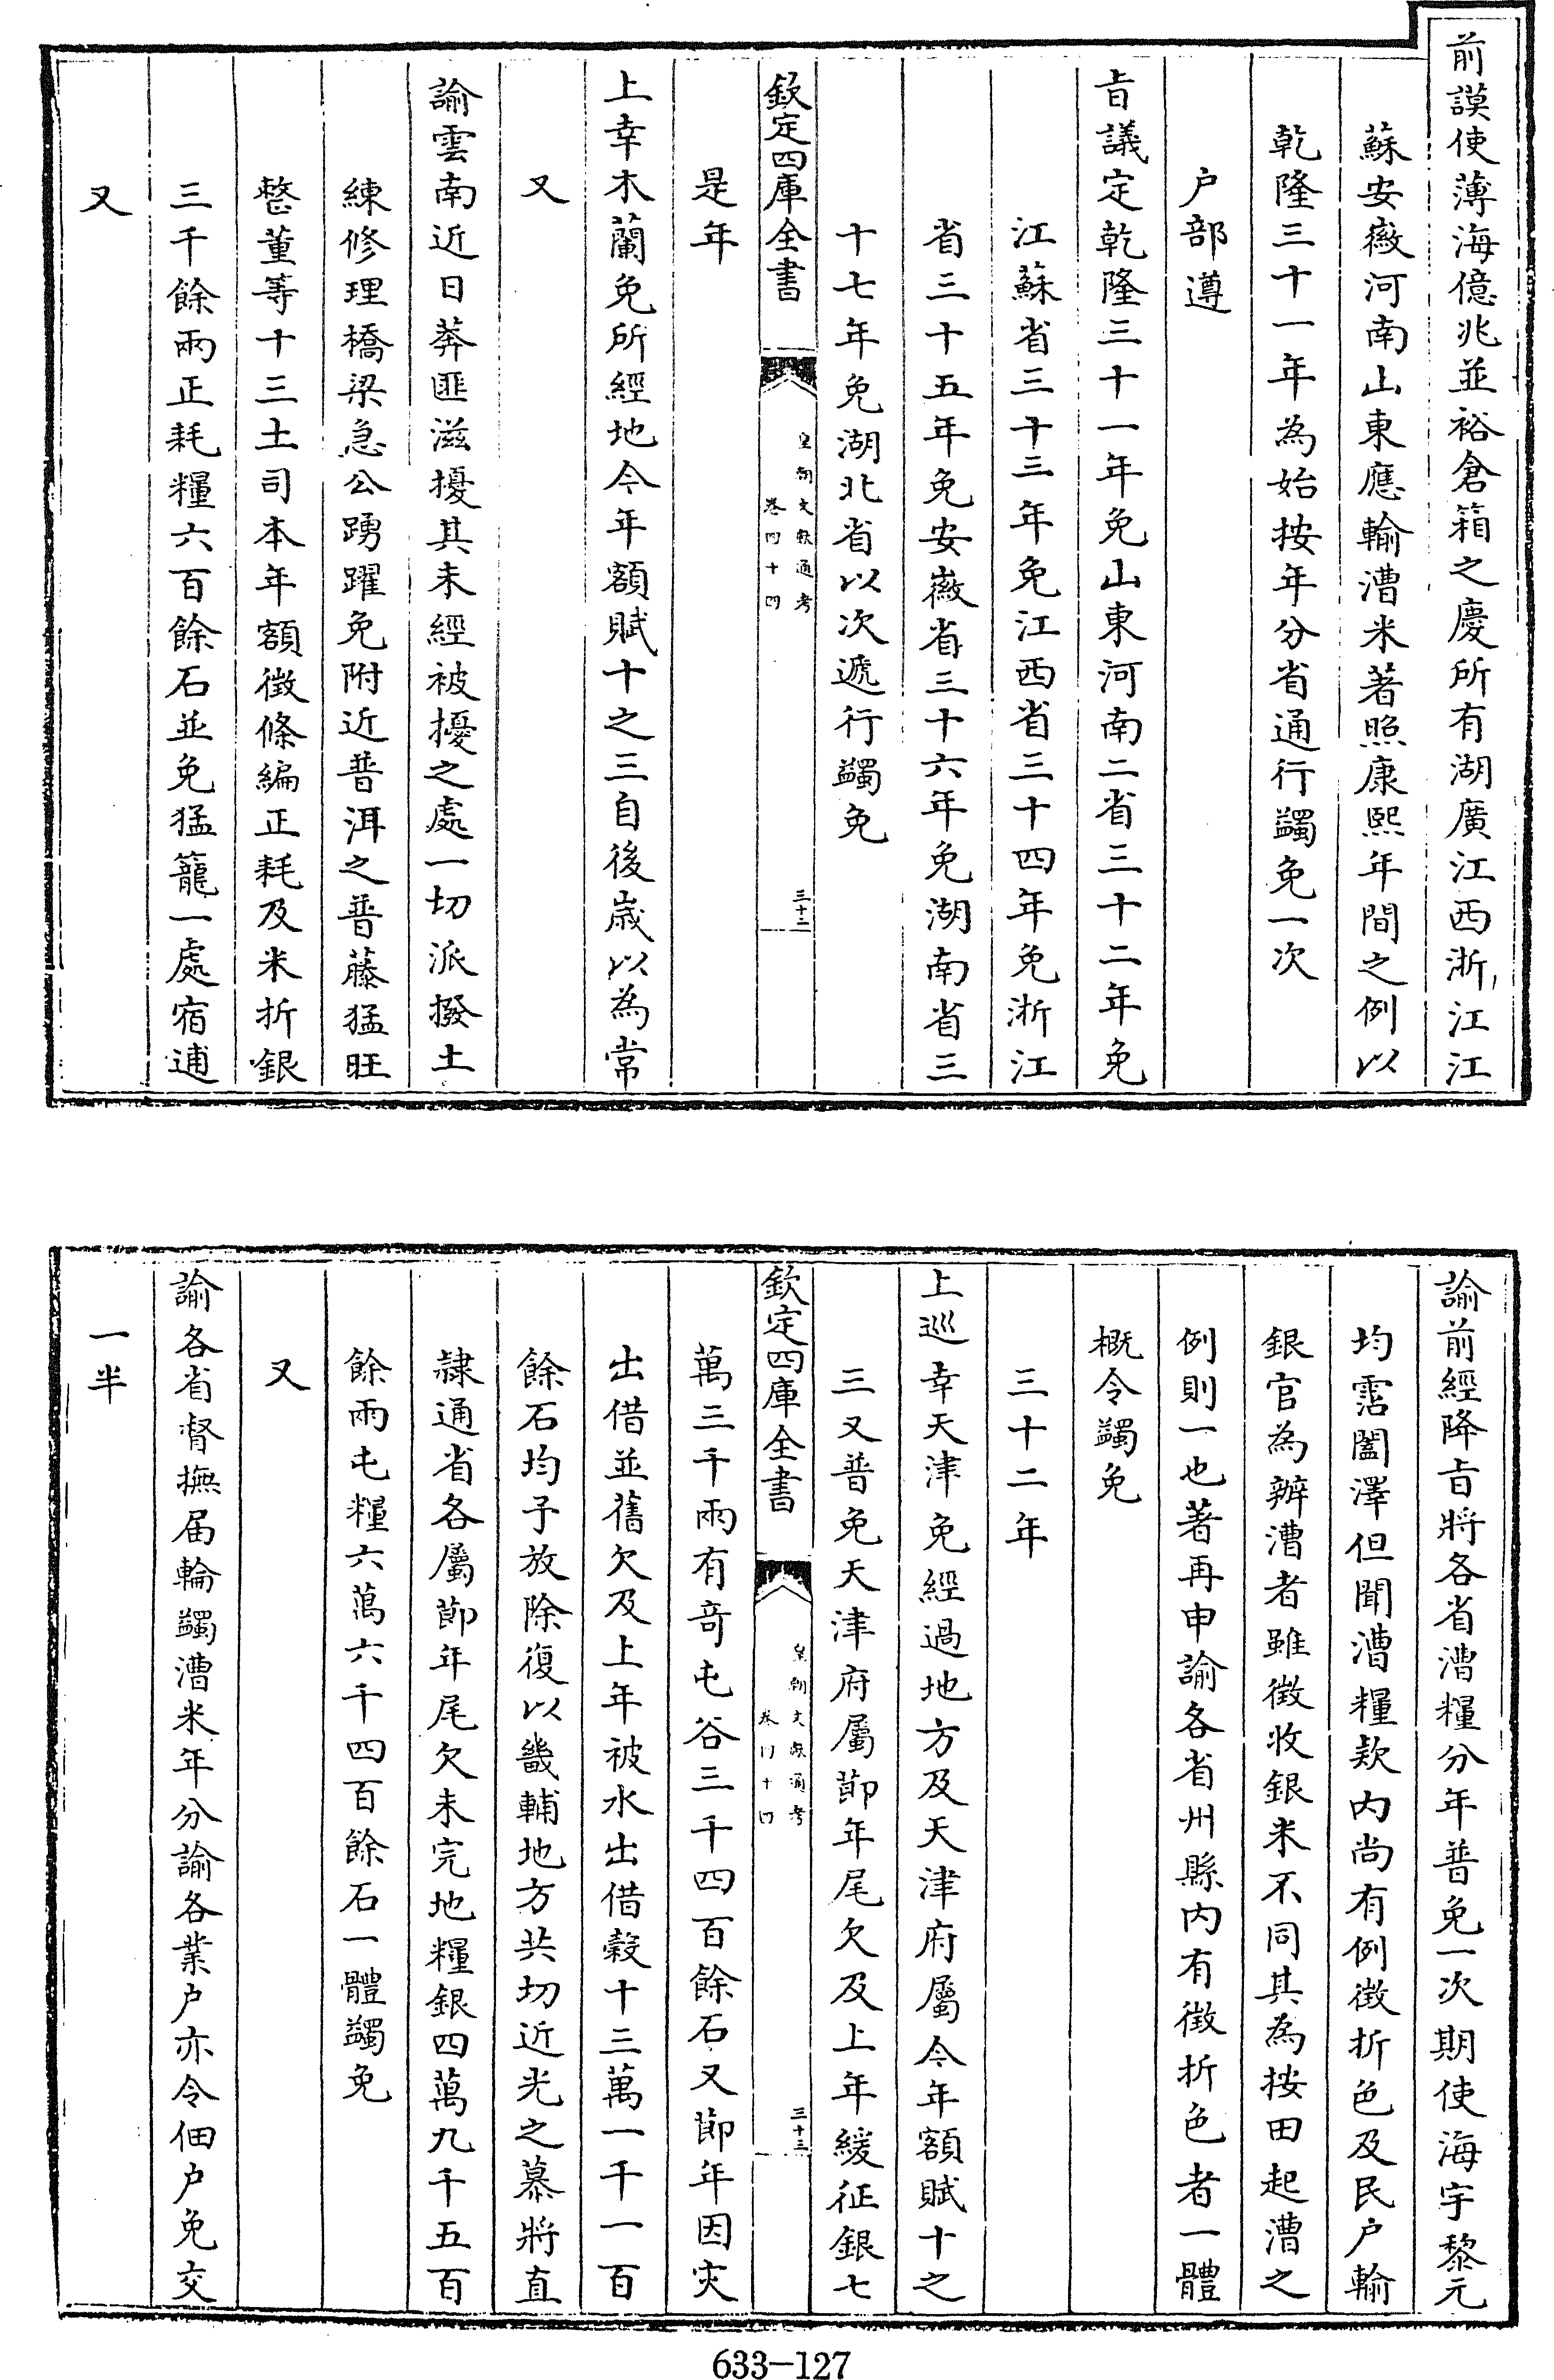 前謨使薄海億兆並裕倉箱之慶所有湖廣江西浙江江
蘇安徽河南山東應輸漕米著照康熙年間之例以
乾隆三十一年為始按年分省通行蠲免一次
户部遵
旨議定乾隆三十一年免山東河南二省三十二年免
江蘇省三十三年免江西省三十四年免浙江
省三十五年免安徽省三十六年免湖南省三
十七年免湖北省以次遞行蠲免
欽定四庫全書
皇朝文獻通考
卷四十四
三十二
是年
上幸木蘭免所經地今年額賦十之三自後歲以為常
又
諭雲南近日莽匪滋擾其未經被擾之處一切派撥土
練修理橋梁急公踴躍免附近普洱之普藤猛旺
整董等十三土司本年額徵條編正耗及米折銀
三千餘兩正耗糧六百餘石並免猛籠一處宿逋
又
諭前經降旨將各省漕糧分年普免一次期使海宇黎元
均霑闓澤但聞漕糧款内尚有例徵折色及民户輸
銀官為辦漕者雖徵收銀米不同其為按田起漕之
例則一也著再申諭各省州縣内有徵折色者一體
概令蠲免
三十二年
上巡幸天津免經過地方及天津府屬今年額賦十之
三又普免天津府屬節年尾欠及上年緩征銀七
欽定四庫全書
皇朝文獻通考
卷四十四
三十三
萬三千兩有竒屯谷三千四百餘石又節年因灾
出借並舊欠及上年被水出借穀十三萬一千一百
餘石均予放除復以畿輔地方共切近光之慕將直
隷通省各屬節年尾欠未完地糧銀四萬九千五百
餘兩屯糧六萬六千四百餘石一體蠲免
又
諭各省督撫届輪蠲漕米年分諭各業户亦令佃户免交
一半
633-127